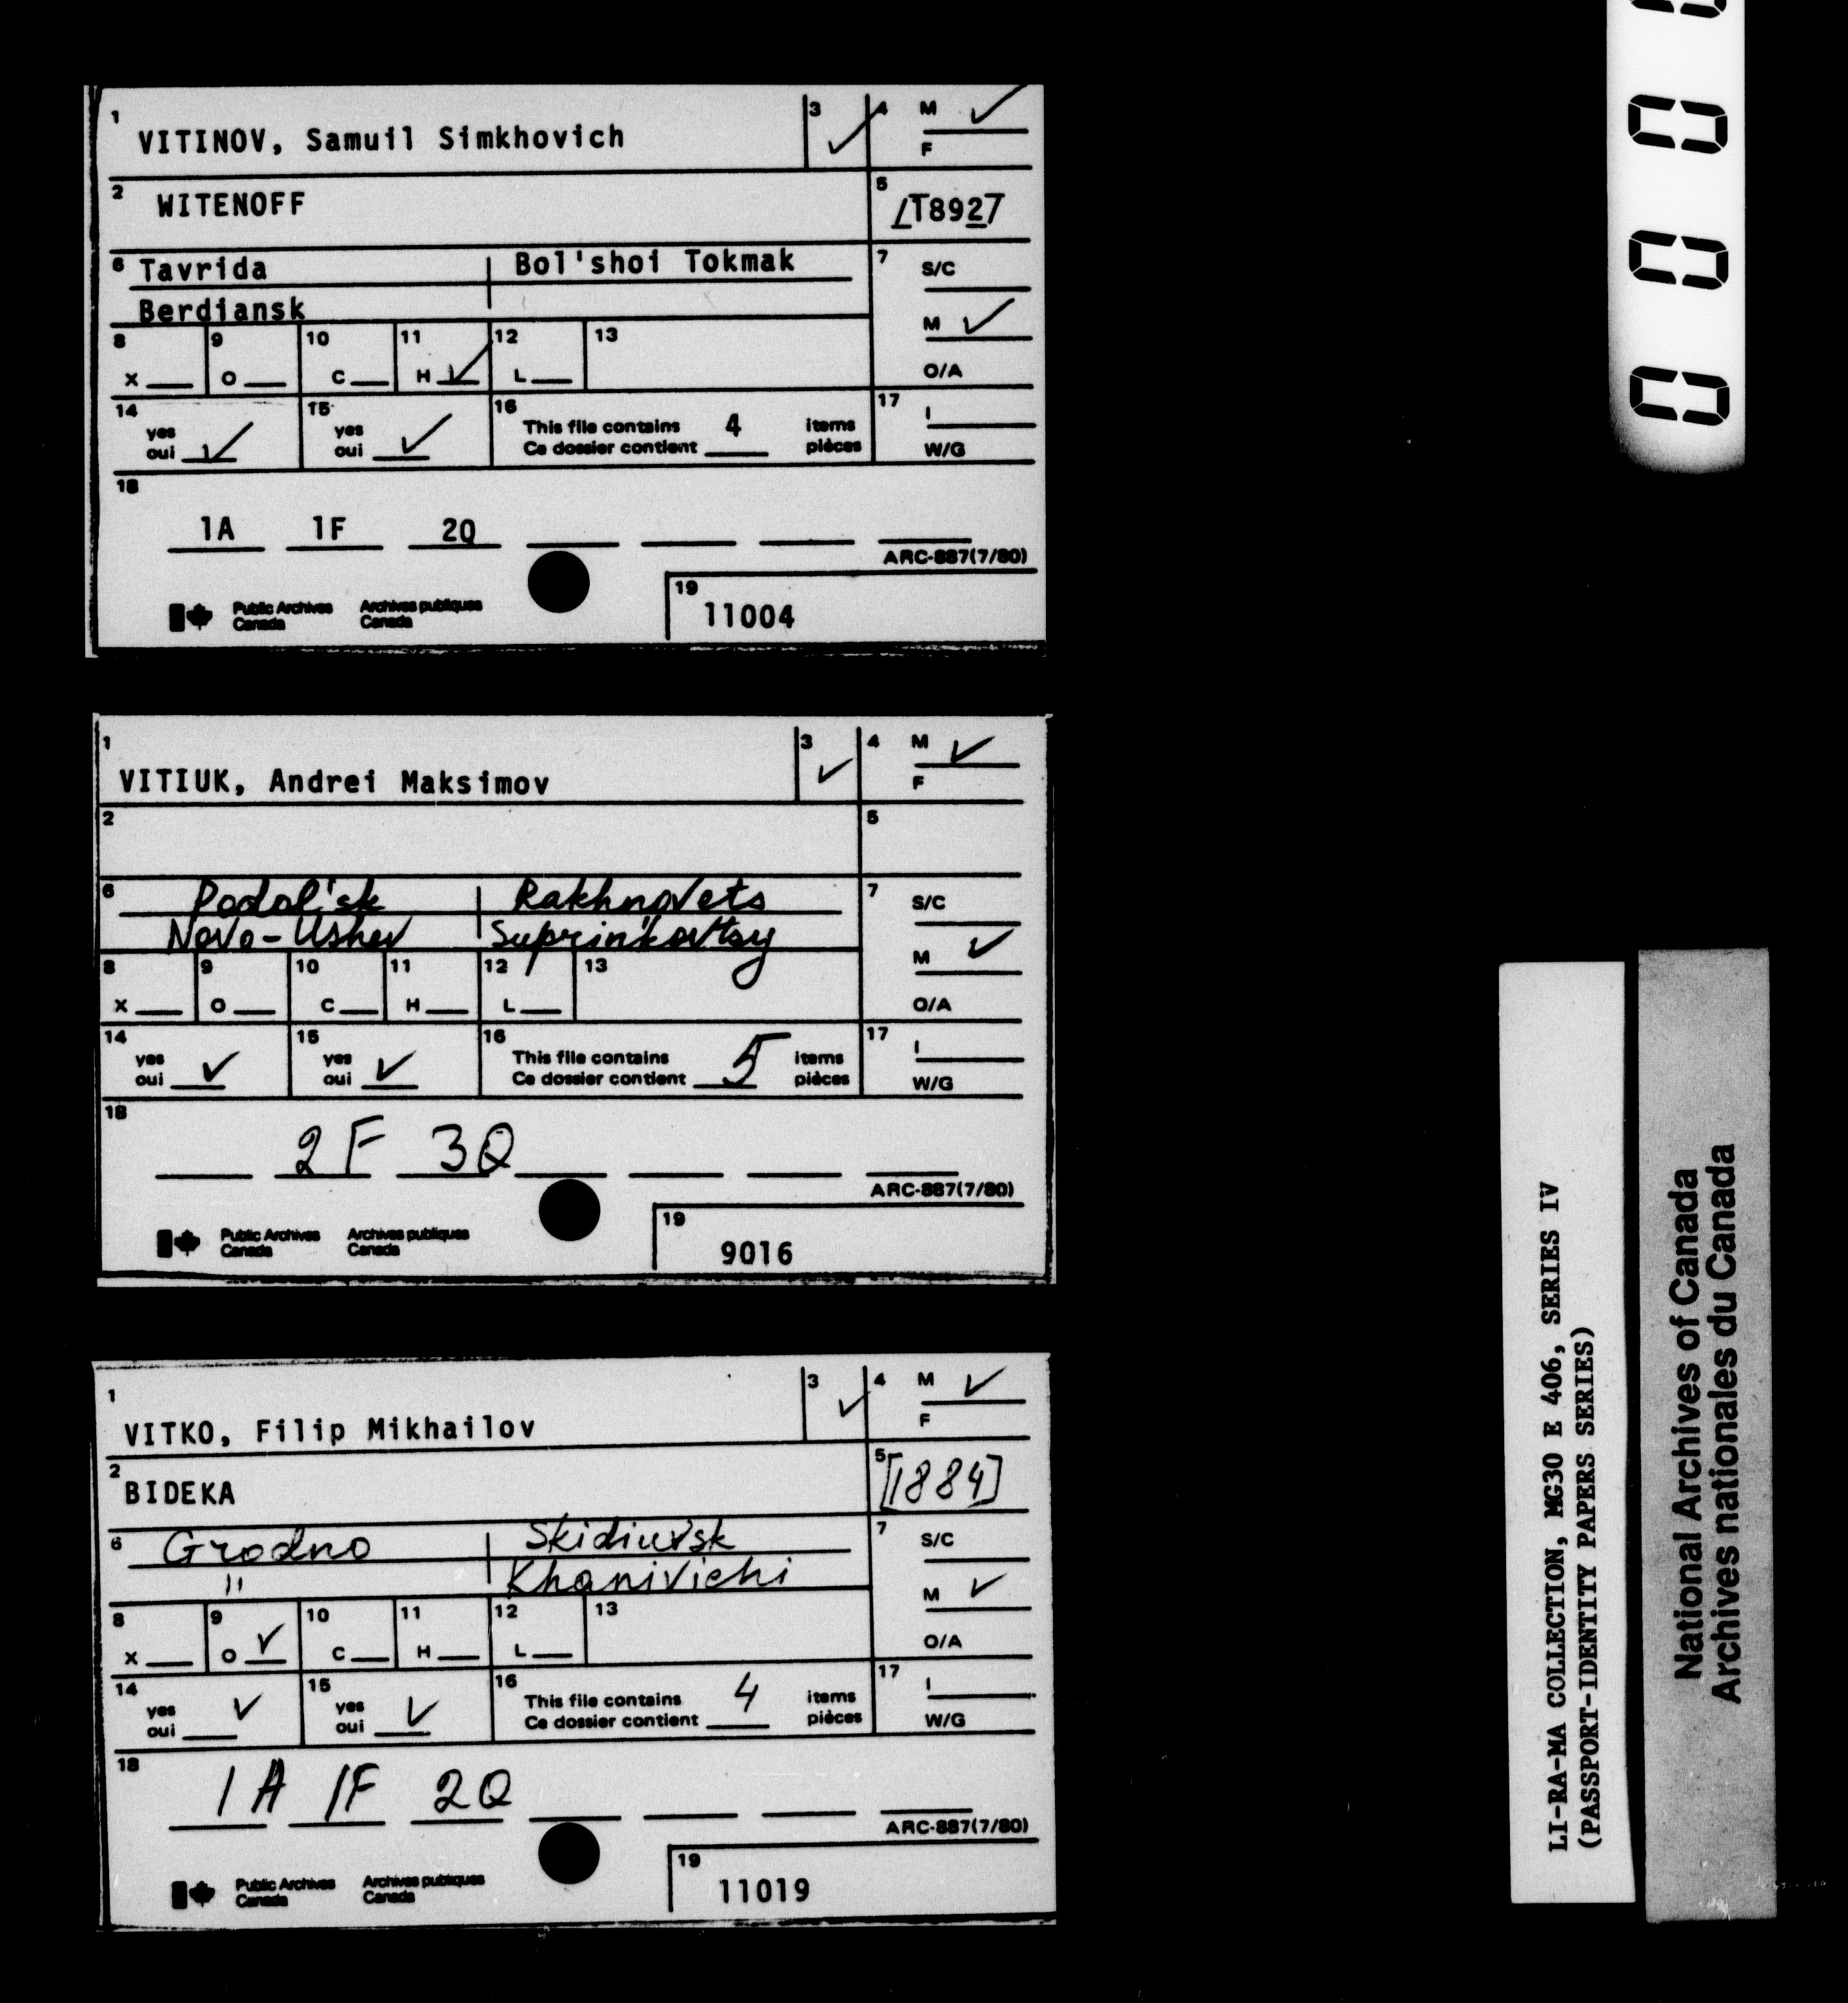 1 VITINOV, Samuil Simkhovich 3 ✓ 4 M ✓
F
2 WITENOFF 5 [T8927
6 Tavrida Bol'shoi Tokmak 7 S/C
Berdiansk M ✓
8 X 9 O 10 C 11 H ✓ 12 L 13 O/A
14 yes oui ✓ 15 yes oui ✓ 16 This file contains 4 items 17 I
Ce dossier contient pièces W/G
18
1A 1F 2Q
ARC-887(7/80)
Public Archives Canada Archives publiques Canada 19 11004
1 VITIUK, Andrei Maksimov 3 ✓ 4 M ✓
F
2 5
6 Podol'sk Rakhnovets 7 S/C
Novo-Ushev Suprin'kovtsy M ✓
8 X 9 O 10 C 11 H 12 L 13 O/A
14 yes oui ✓ 15 yes oui ✓ 16 This file contains 5 items 17 I
Ce dossier contient pièces W/G
18
2F 3Q
ARC-887(7/80)
Public Archives Canada Archives publiques Canada 19 9016
1 VITKO, Filip Mikhailov 3 ✓ 4 M ✓
F
2 BIDEKA 5 [1884]
6 Grodno Skidiuvsk 7 S/C
" Khanivichi M ✓
8 X 9 O ✓ 10 C 11 H 12 L 13 O/A
14 yes oui ✓ 15 yes oui ✓ 16 This file contains 4 items 17 I
Ce dossier contient pièces W/G
18
1A 1F 2Q
ARC-887(7/80)
Public Archives Canada Archives publiques Canada 19 11019
0 0 0
LI-RA-MA COLLECTION, MG30 E 406, SERIES IV
(PASSPORT-IDENTITY PAPERS SERIES)
National Archives of Canada
Archives nationales du Canada